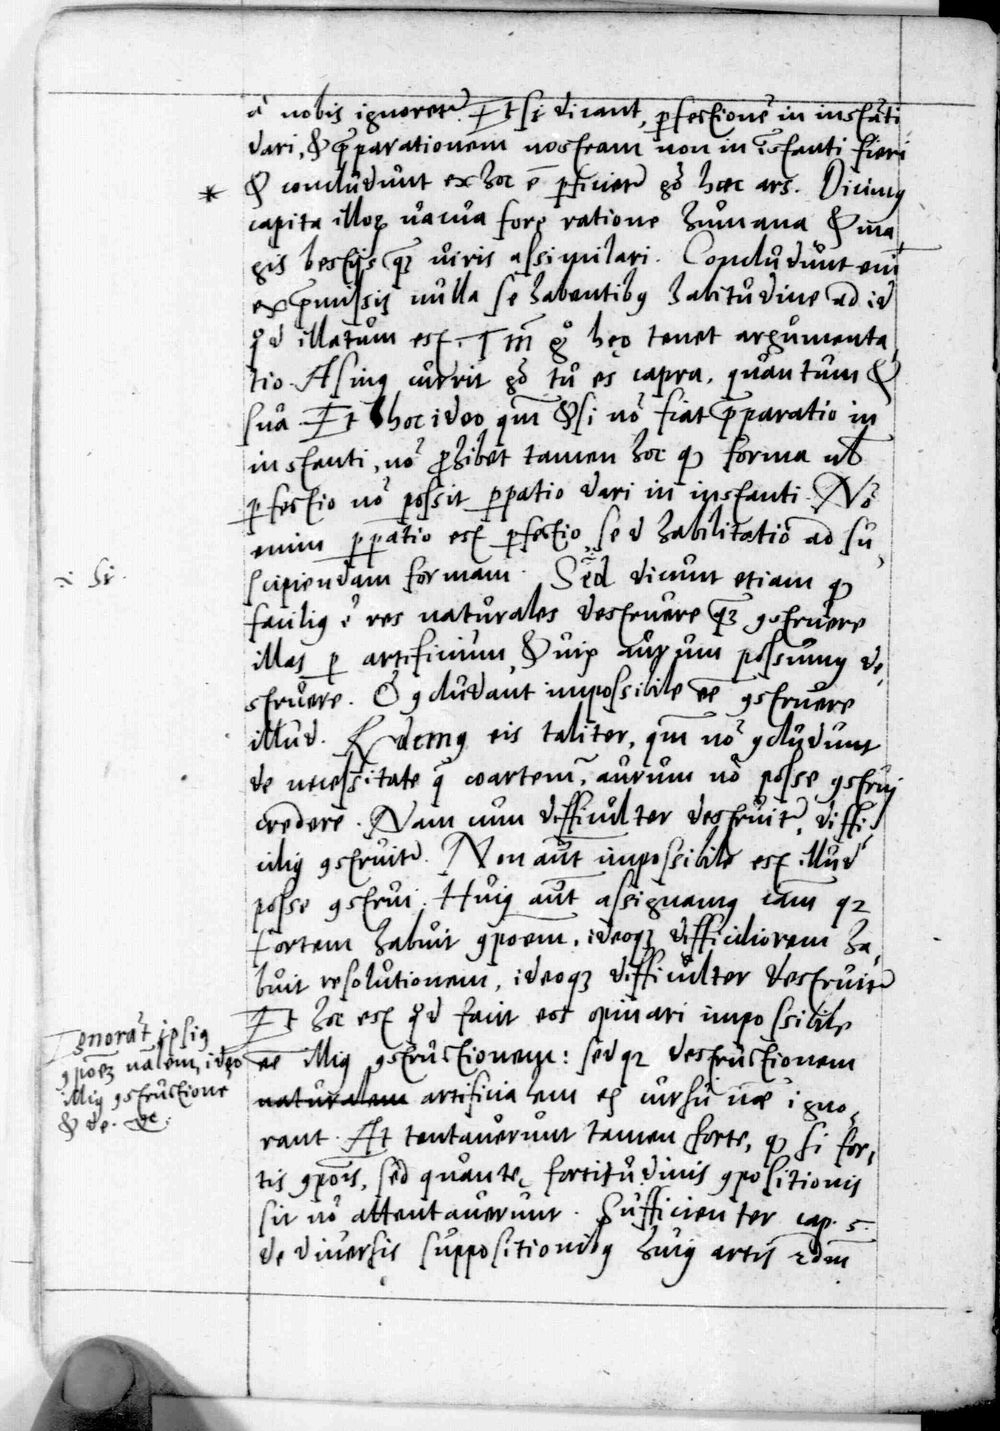 à nobis ignoretʳ. Et si dicant, ꝑfectionē in instāti
dari, & p̄parationem nostram non in īstanti fieri
& concludunt ex hoc ē ꝑficietʳ gō hæc ars. Dicimꝯ
capita illoꝝ vacua fore ratione humana & ma
gis bestijs qꝫ viris assimilari. Concludunt eni͂
ex p̄missis nulla se habentibꝯ habitudine ad id
qd illatum est. Tm̄ gº hęc tenet argumenta
tio. Asinꝯ currit gō tu es capra, quantum &
sua. Et hoc ideo qm̄ & si nō fiat p̄paratio in
instanti, nō ꝓhibet tamen hoc qꝫ forma ul̄
ꝑfectio nō possit ꝑpatio dari in instanti. Nō
enim p̄patio est ꝑfectio sed habilitatio ad su
scipiendam formam. Sed dicunt etiam qꝫ
i Si.
faciliꝯ ē res naturales destruere qꝫ ꝯstruere
illas ꝑ artificium, & vix aurum possumꝯ de
struere. Ō ꝯcludant impossibile ēē ꝯstruere
illud. Rdemꝯ eis taliter, qm̄ nō ꝯcludunt
de necessitate q̄ coartem̄, aurum nō posse ꝯstrui
credere. Nam cum difficulter destruitʳ, diffi
ciliꝯ ꝯstruitʳ. Non aūt impossibile est illud
posse ꝯstrui. Huiꝯ aūt assignamꝯ cām qꝫ
fortem habuit ꝯpoem, ideoqꝫ difficiliorem ha
buit resolutionem, ideoqꝫ difficulter destruitʳ
Et hoc est qd facit eos opinari impossibile
ēē illiꝯ ꝯstructionem: sed qꝫ destructionem
Ignorāt ipsiꝯ
ꝯpoēꝫ nālem, ideo
illiꝯ ꝯstructione
& de. &c.
naturalem artificialem et cursū nāe igno
rant. At tentaverunt tamen forte, qꝫ si for
tis ꝯpoīs, sed quantę fortitudinis ꝯpositionis
sit nō attentaverunt. Sufficienter cap. 5.
de diversis suppositionibꝯ huiꝯ artis rdm̄